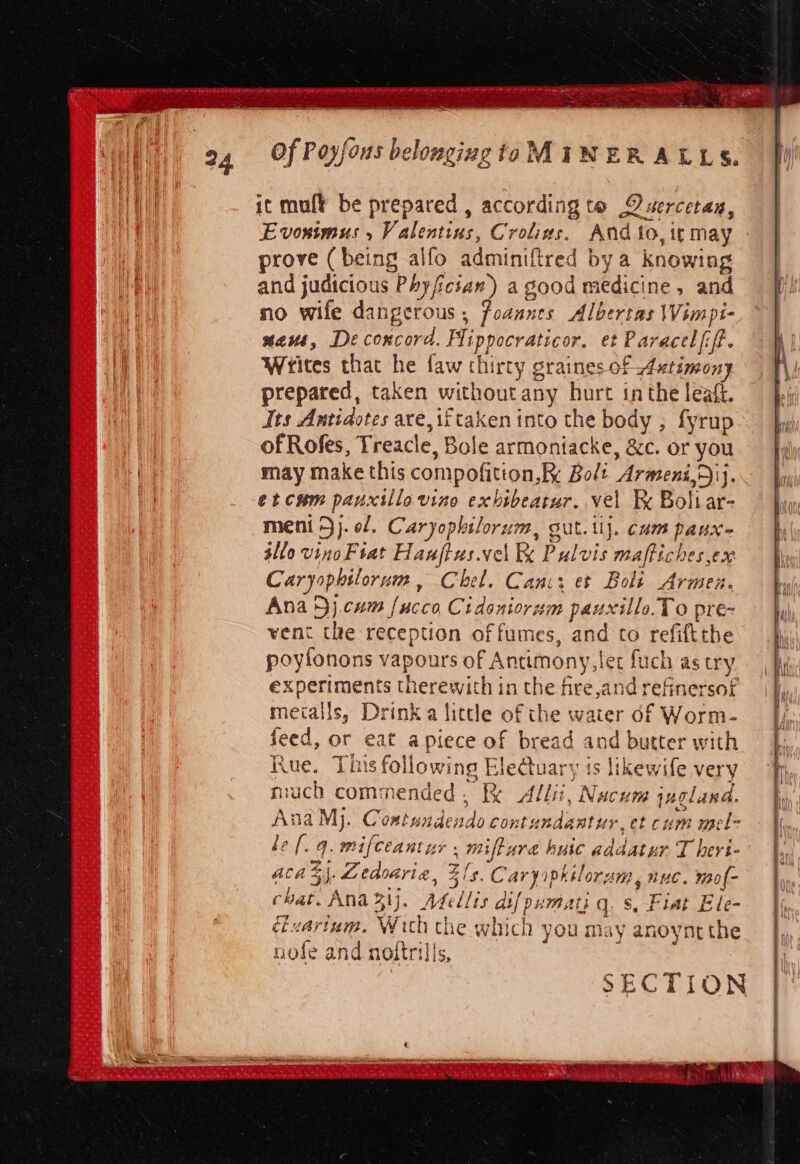 24 Of Poyſons belonging to MINERALLS.
it muſt be prepared, according to Quercetan,
Evonimus, Valentius, Crolius. And ſo, it may
prove (being alſo adminiſtred by a knowing
and judicious Phyſician) a good medicine, and
no wiſe dangerous; Joannes Albertas Wimpi-
naus, De concord. Hippocraticor. et Paracelſiſt.
Writes that he ſaw thirty graines of Antimony
prepared, taken without any hurt in the leaſt.
Its Antidotes are, if taken into the body, ſyrup
of Roſes, Treacle, Bole armoniacke, &c. or you
may make this compoſition, ℞ Boli Armeni, ℈ij.
et cum pauxillo vino exhibeatur. vel ℞ Boli ar-
meni ℈j. ol. Caryophilorum, gut. iij. cum paux-
illo vino Fiat Hauſtus. vel ℞ Pulvis maſtiches, ex
Caryophilorum, Chel. Canc; et Boli Armen.
Ana ℈j. cum ſucco Cidoniorum pauxillo. To pre-
vent the reception of fumes, and to reſiſt the
poyſonons vapours of Antimony, let ſuch as try
experiments therewith in the fire, and refiners of
metalls, Drink a little of the water of Worm-
ſeed, or eat a piece of bread and butter with
Rue. This following Electuary is likewiſe very
much commended; ℞ Allii, Nucum jugland.
Ana Mj. Contundendo contundantur, et cum mel-
le ſ. q. miſceantur; miſturæ huic addatur Theri-
aca ʒj. Zedoariæ, ʒſs. Caryophilorum, nuc. moſ-
chat. Ana ʒij. Mellis diſpumati q. s, Fiat Ele-
ctuarium. With the which you may anoynt the
noſe and noſtrills,
SECTION